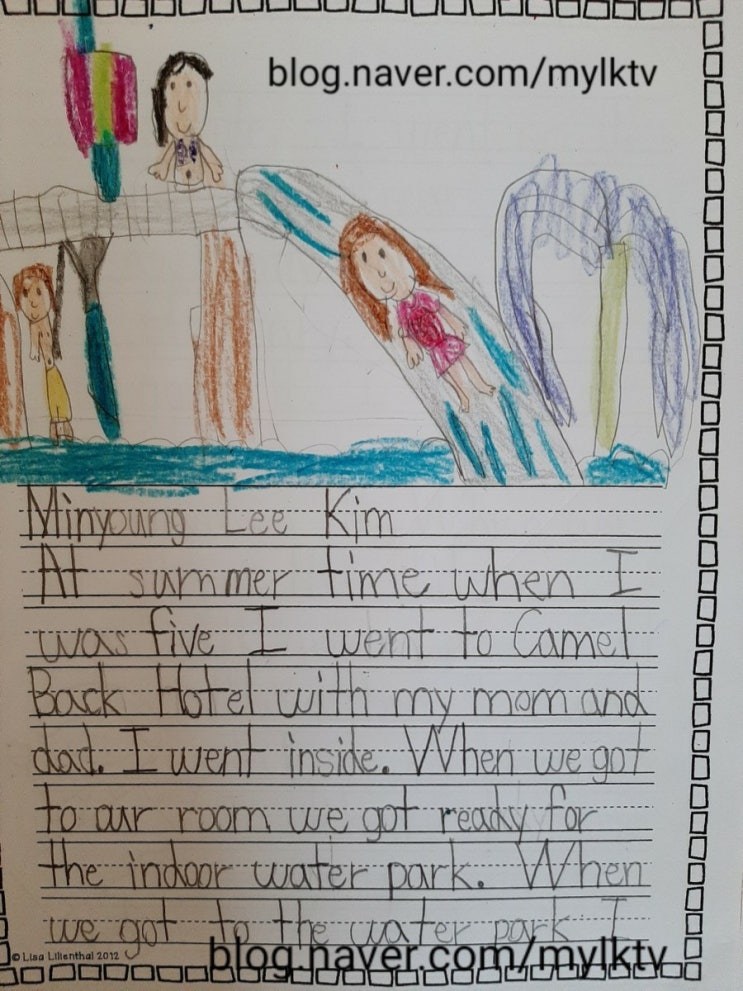 blog.naver.com/mylktv
Minyoung Lee Kim
At summer time when I
was five I went to Camel
Back Hotel with my mom and
dad. I went inside. When we got
to our room we got ready for
the indoor water park. When
we got to the water park I
© Lisa Lilienthal 2012
blog.naver.com/mylktv